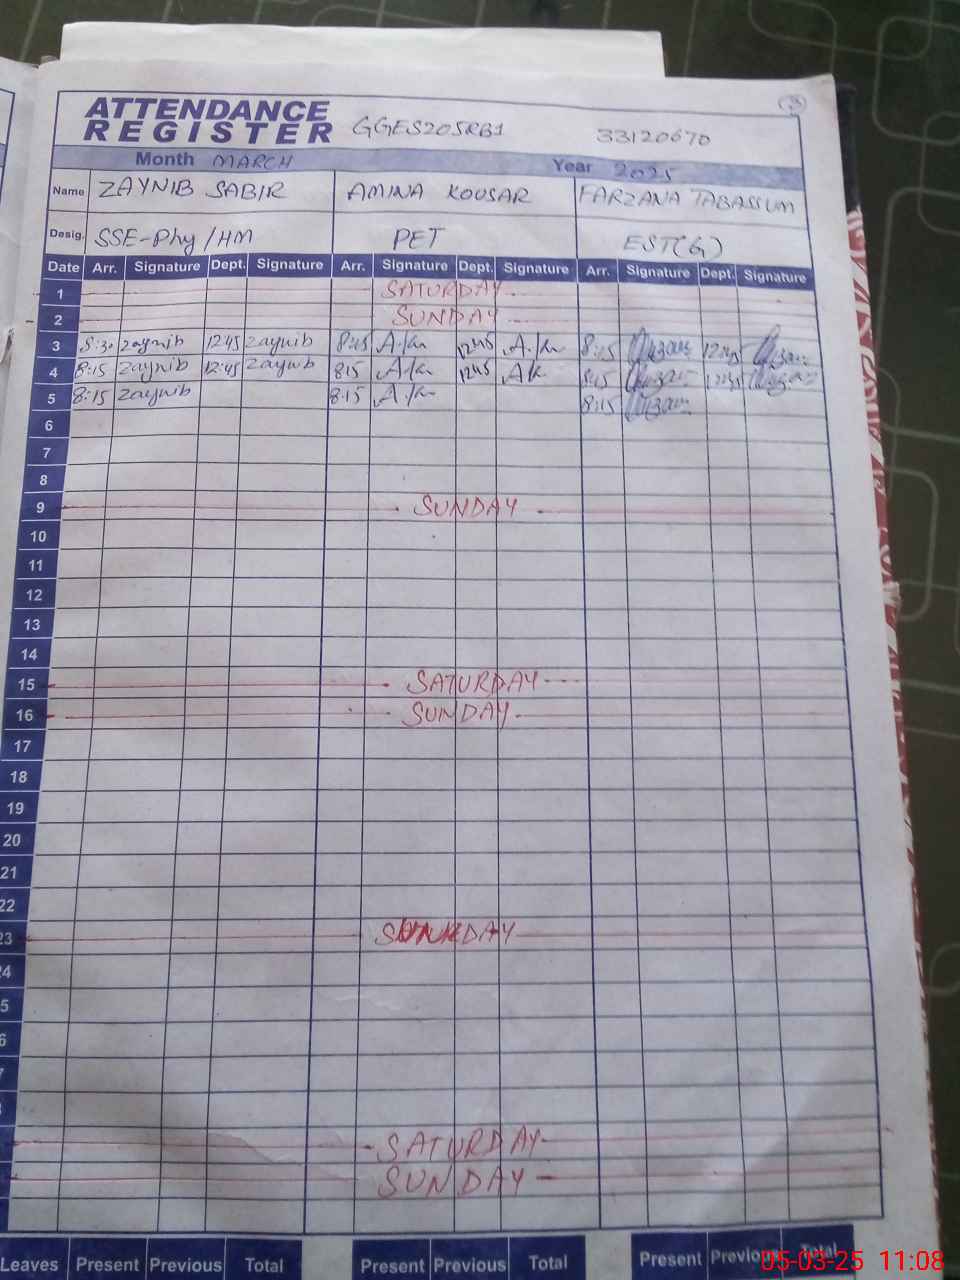 ATTENDANCE
REGISTER GGES205RB1 33120670
Month MARCH Year 2025
Name ZAYNIB SABIR AMINA KOUSAR FARZANA TABASSUM
Desig. SSE-Phy/HM PET EST(G)
Date Arr. Signature Dept. Signature Arr. Signature Dept. Signature Arr. Signature Dept. Signature
1 SATURDAY
2 SUNDAY
3 8:30 zaynib 12:45 zaynib 8:15 A.K 1245 A.K 8:15 1245
4 8:15 zaynib 12:45 zaynib 815 A.K 1245 AK 8:15 1245
5 8:15 zaynib 8:15 A.K 8:15
6
7
8
9 SUNDAY
10
11
12
13
14
15 SATURDAY
16 SUNDAY
17
18
19
20
21
22
23
24
5
6
7
SATURDAY
SUNDAY
Leaves Present Previous Total Present Previous Total Present Previous Total
05-03-25 11:08